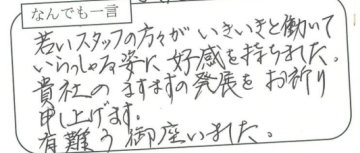 なんでも一言
若いスタッフの方々が いきいきと働いて
いらっしゃる姿に 好感を持ちました。
貴社の ますますの発展を お祈り
申し上げます。
有難う御座いました。